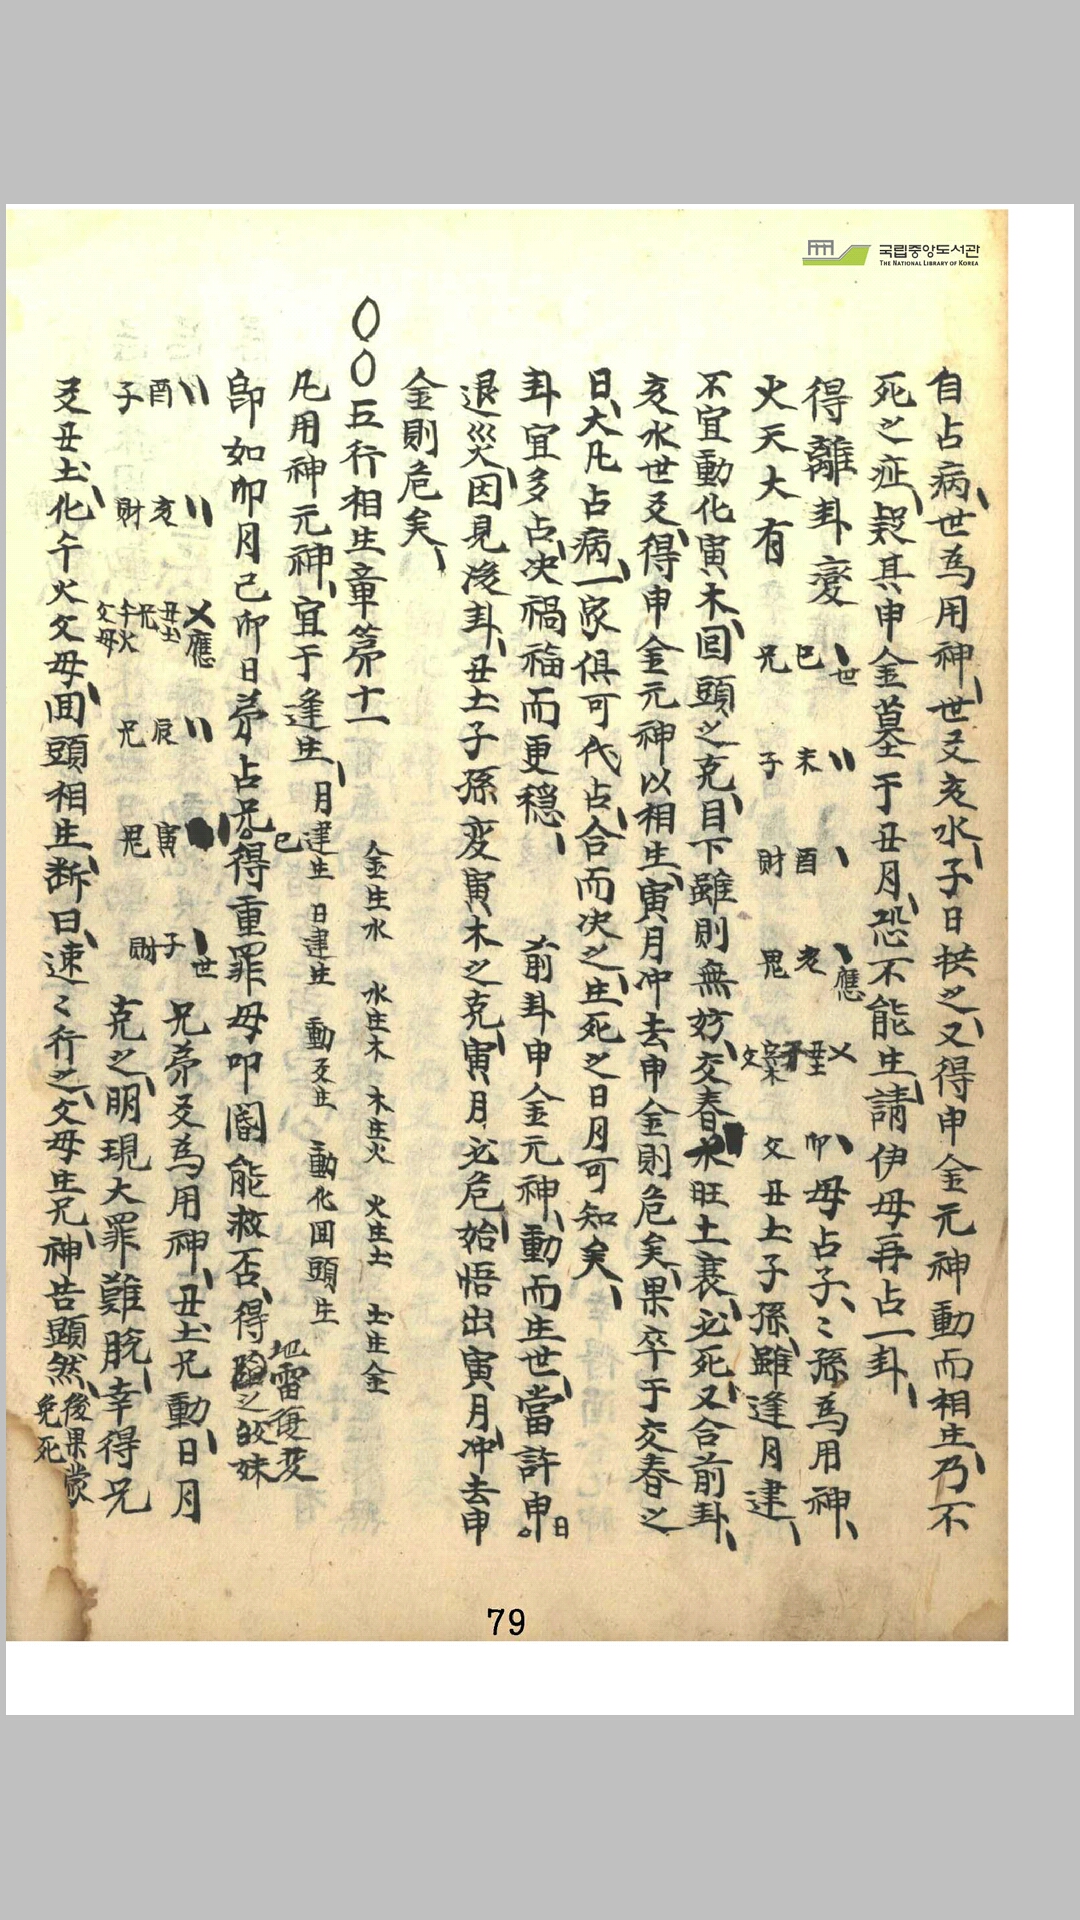 국립중앙도서관
THE NATIONAL LIBRARY OF KOREA
自占病世為用神世爻亥水子日拱之又得申金元神動而相生乃不
死之症疑其申金墓于丑月恐不能生請伊母再占一卦
得離卦變
火天大有
巳 兄 世
未 子
酉 財
亥 鬼 應
丑土
卯 父
母占子〻孫為用神
丑土子孫雖逢月建
不宜動化寅木回頭之克目下雖則無妨交春木旺土衰必死又合前卦
亥水世爻得申金元神以相生寅月冲去申金則危矣果卒于交春之
日大凡占病一家俱可代占合而决之生死之日月可知矣
卦宜多占决禍福而更穩 前卦申金元神動而生世當許申日
退災因見後卦丑土子孫変寅木之克寅月必危始悟出寅月冲去申
金則危矣
〇〇五行相生章第十一 金生水 水生木 木生火 火生土 土生金
凡用神元神宜于逢生 月建生 日建生 動爻生 動化回頭生
即如卯月己卯日弟占兄得重罪母叩閽能救否得地雷復変
酉 子
亥 財
丑土 兄 午火 父母 應
辰 兄
寅 鬼
子 財 世
兄弟爻為用神丑土兄動日月
克之明現大罪難脫幸得兄
爻丑土化午火父母回頭相生断曰速〻行之父母生兄神告顯然後果蒙
免死
79